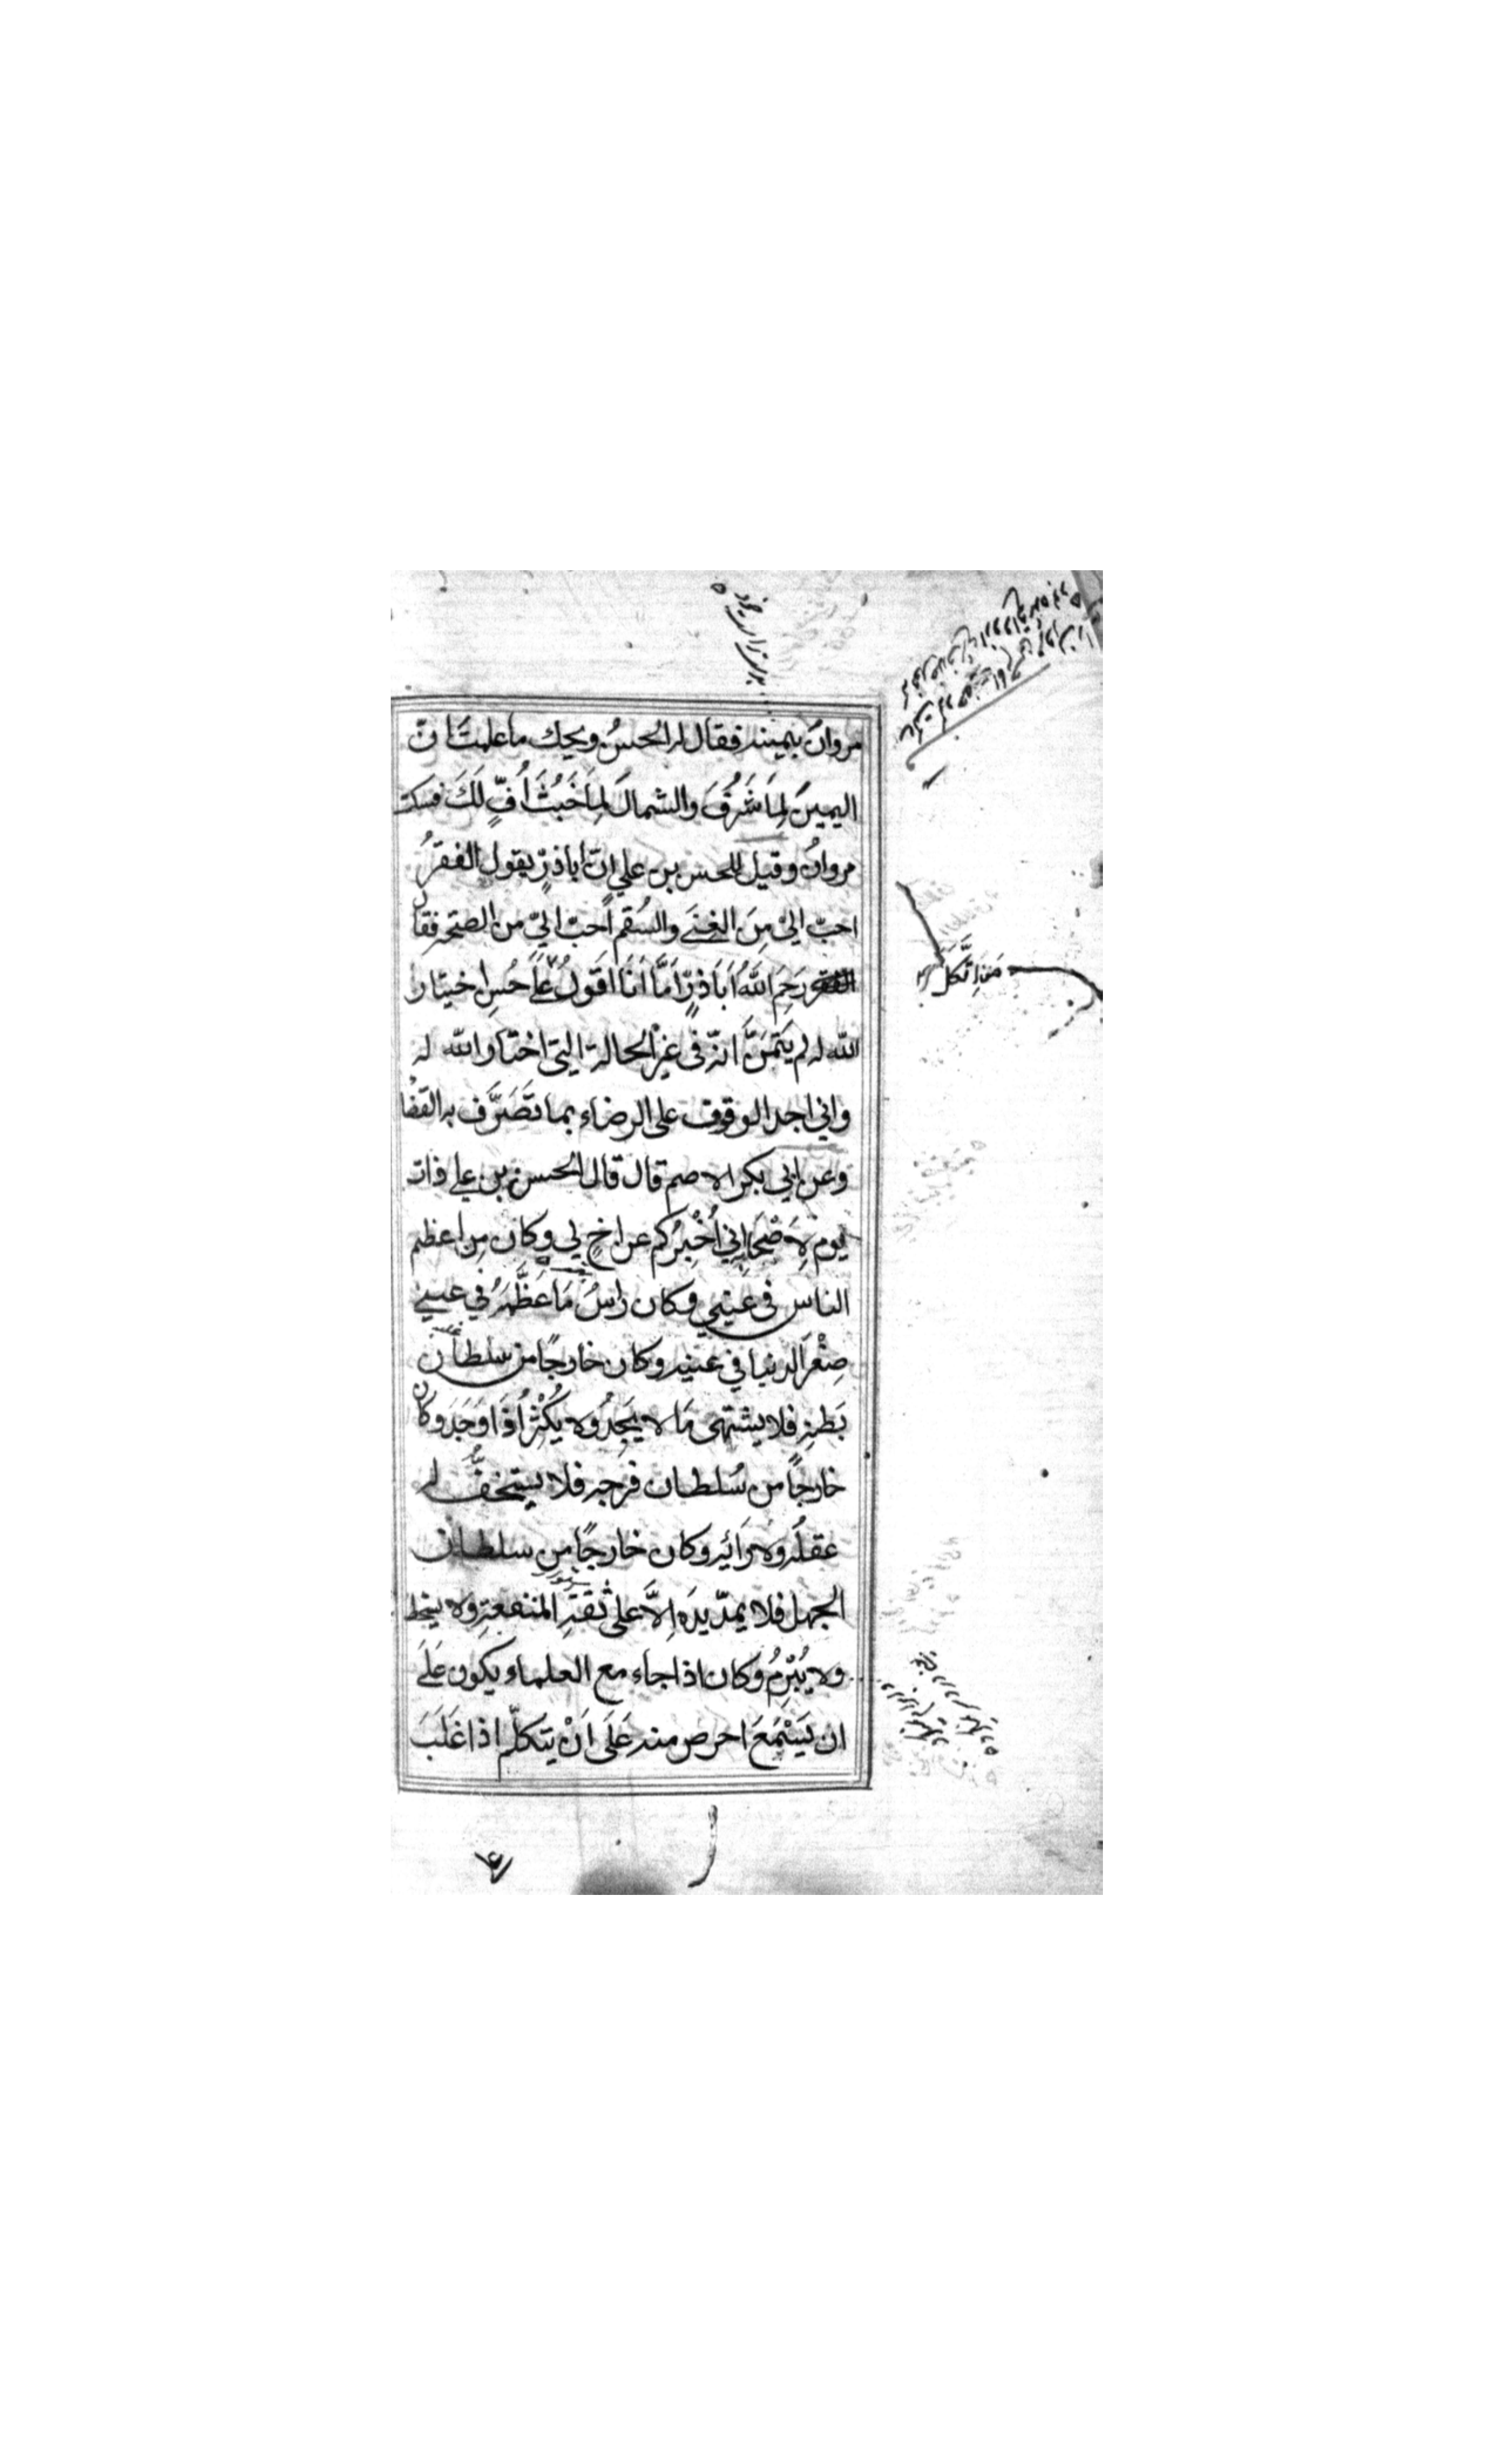 مروانُ بيمينه فقال له الحسنُ ويحك ما علمتَ انّ
اليمينَ لِمَا شَرُفَ والشمالَ لِمَا خَبُثَ أُفٍّ لَكَ فسكت
مروانُ وقيل للحسن بن علي انّ اباذرٍّ يقول الفقرُ
احبّ اليّ مِنَ الغِنَى والسُقم احبّ اليّ من الصحة فقال
رَحِمَ اللّٰهُ اَبَاذرٍّ اَمَّا اَنَا اَقولُ عَلَى حُسن اختيار
مَن اتَّكَلَ
اللّه له لم يَتَمَنَّ انّه فى غيْرِ الحالة التى اختار اللّه له
واني اجد الوقوف على الرضاء بما تَصَرَّف به القضا
وعن ابي بكر الاصم قال قال الحسن بن علي ذات
يوم لِاَصْحَابِه اِني أُخْبِرُكم عن اخٍ لي وكان مِن اعظم
الناس في عيني وكان راسُ مَا عَظَّمَهُ في عيني
صِغْرَ الدنيا في عينه وكان خارجًا من سلطان
بَطنه فلا يشتهى مَا لا يَجِدُ ولا يُكْثرُ اذَا وَجَدَ وكان
خارجًا من سُلطان فرجه فلا يستخفُّ له
عقلُه ولا رَائيه وكان خارجًا من سلطان
الجهل فلا يمدّ يدَه اِلاَّ على ثقَةِ المنفعةِ ولا يسخط
ولا يُبْرِمُ وكان اذا جاء مع العلماء يكون عَلَى
ان يَسْتَمِعَ احرص منه عَلَى اَنْ يتكلّم اذا غَلَبَ